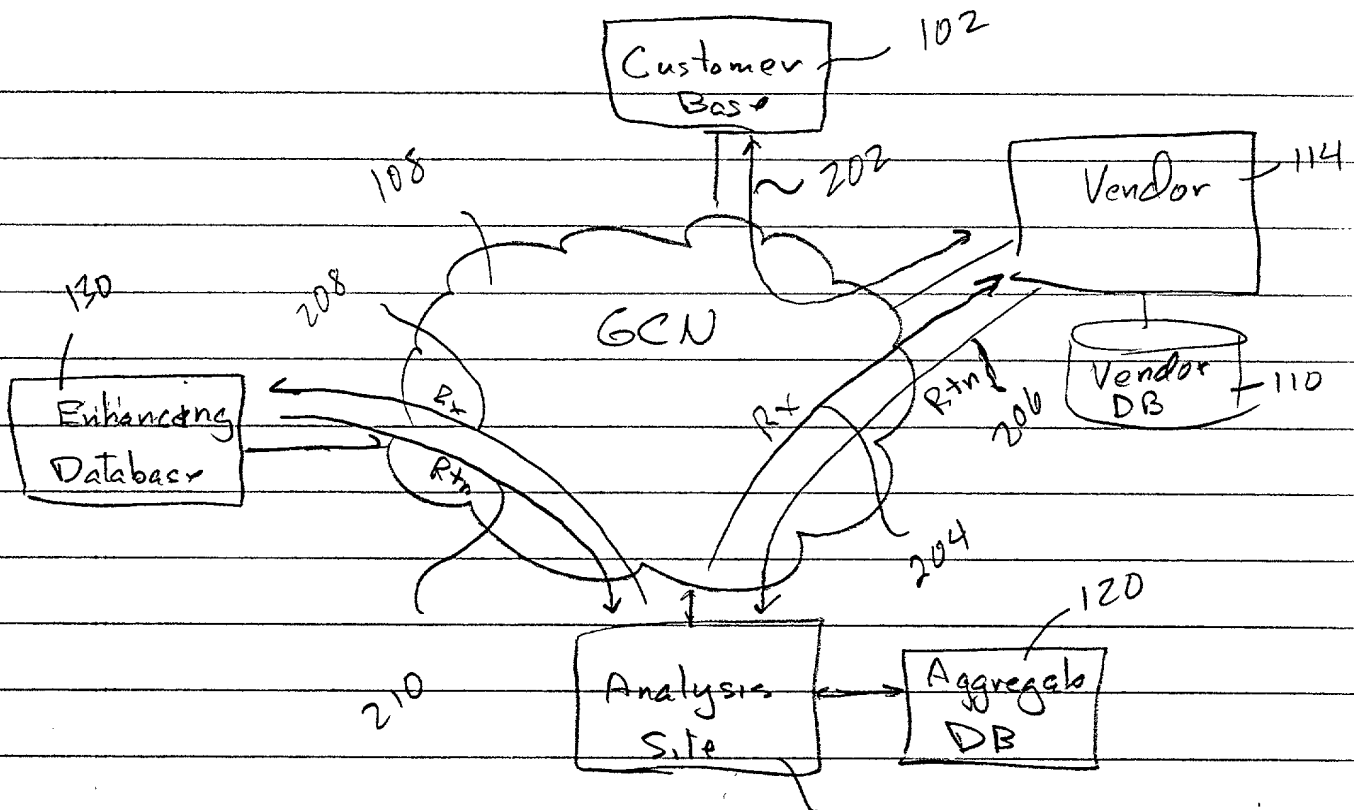 102
Customer
Base
108
202
114
Vendor
130
208
GCN
Vendor
DB
110
Enhancing
Database
Rx
Rtn
Rx
Rtn
206
204
210
120
Analysis
Site
Aggregate
DB